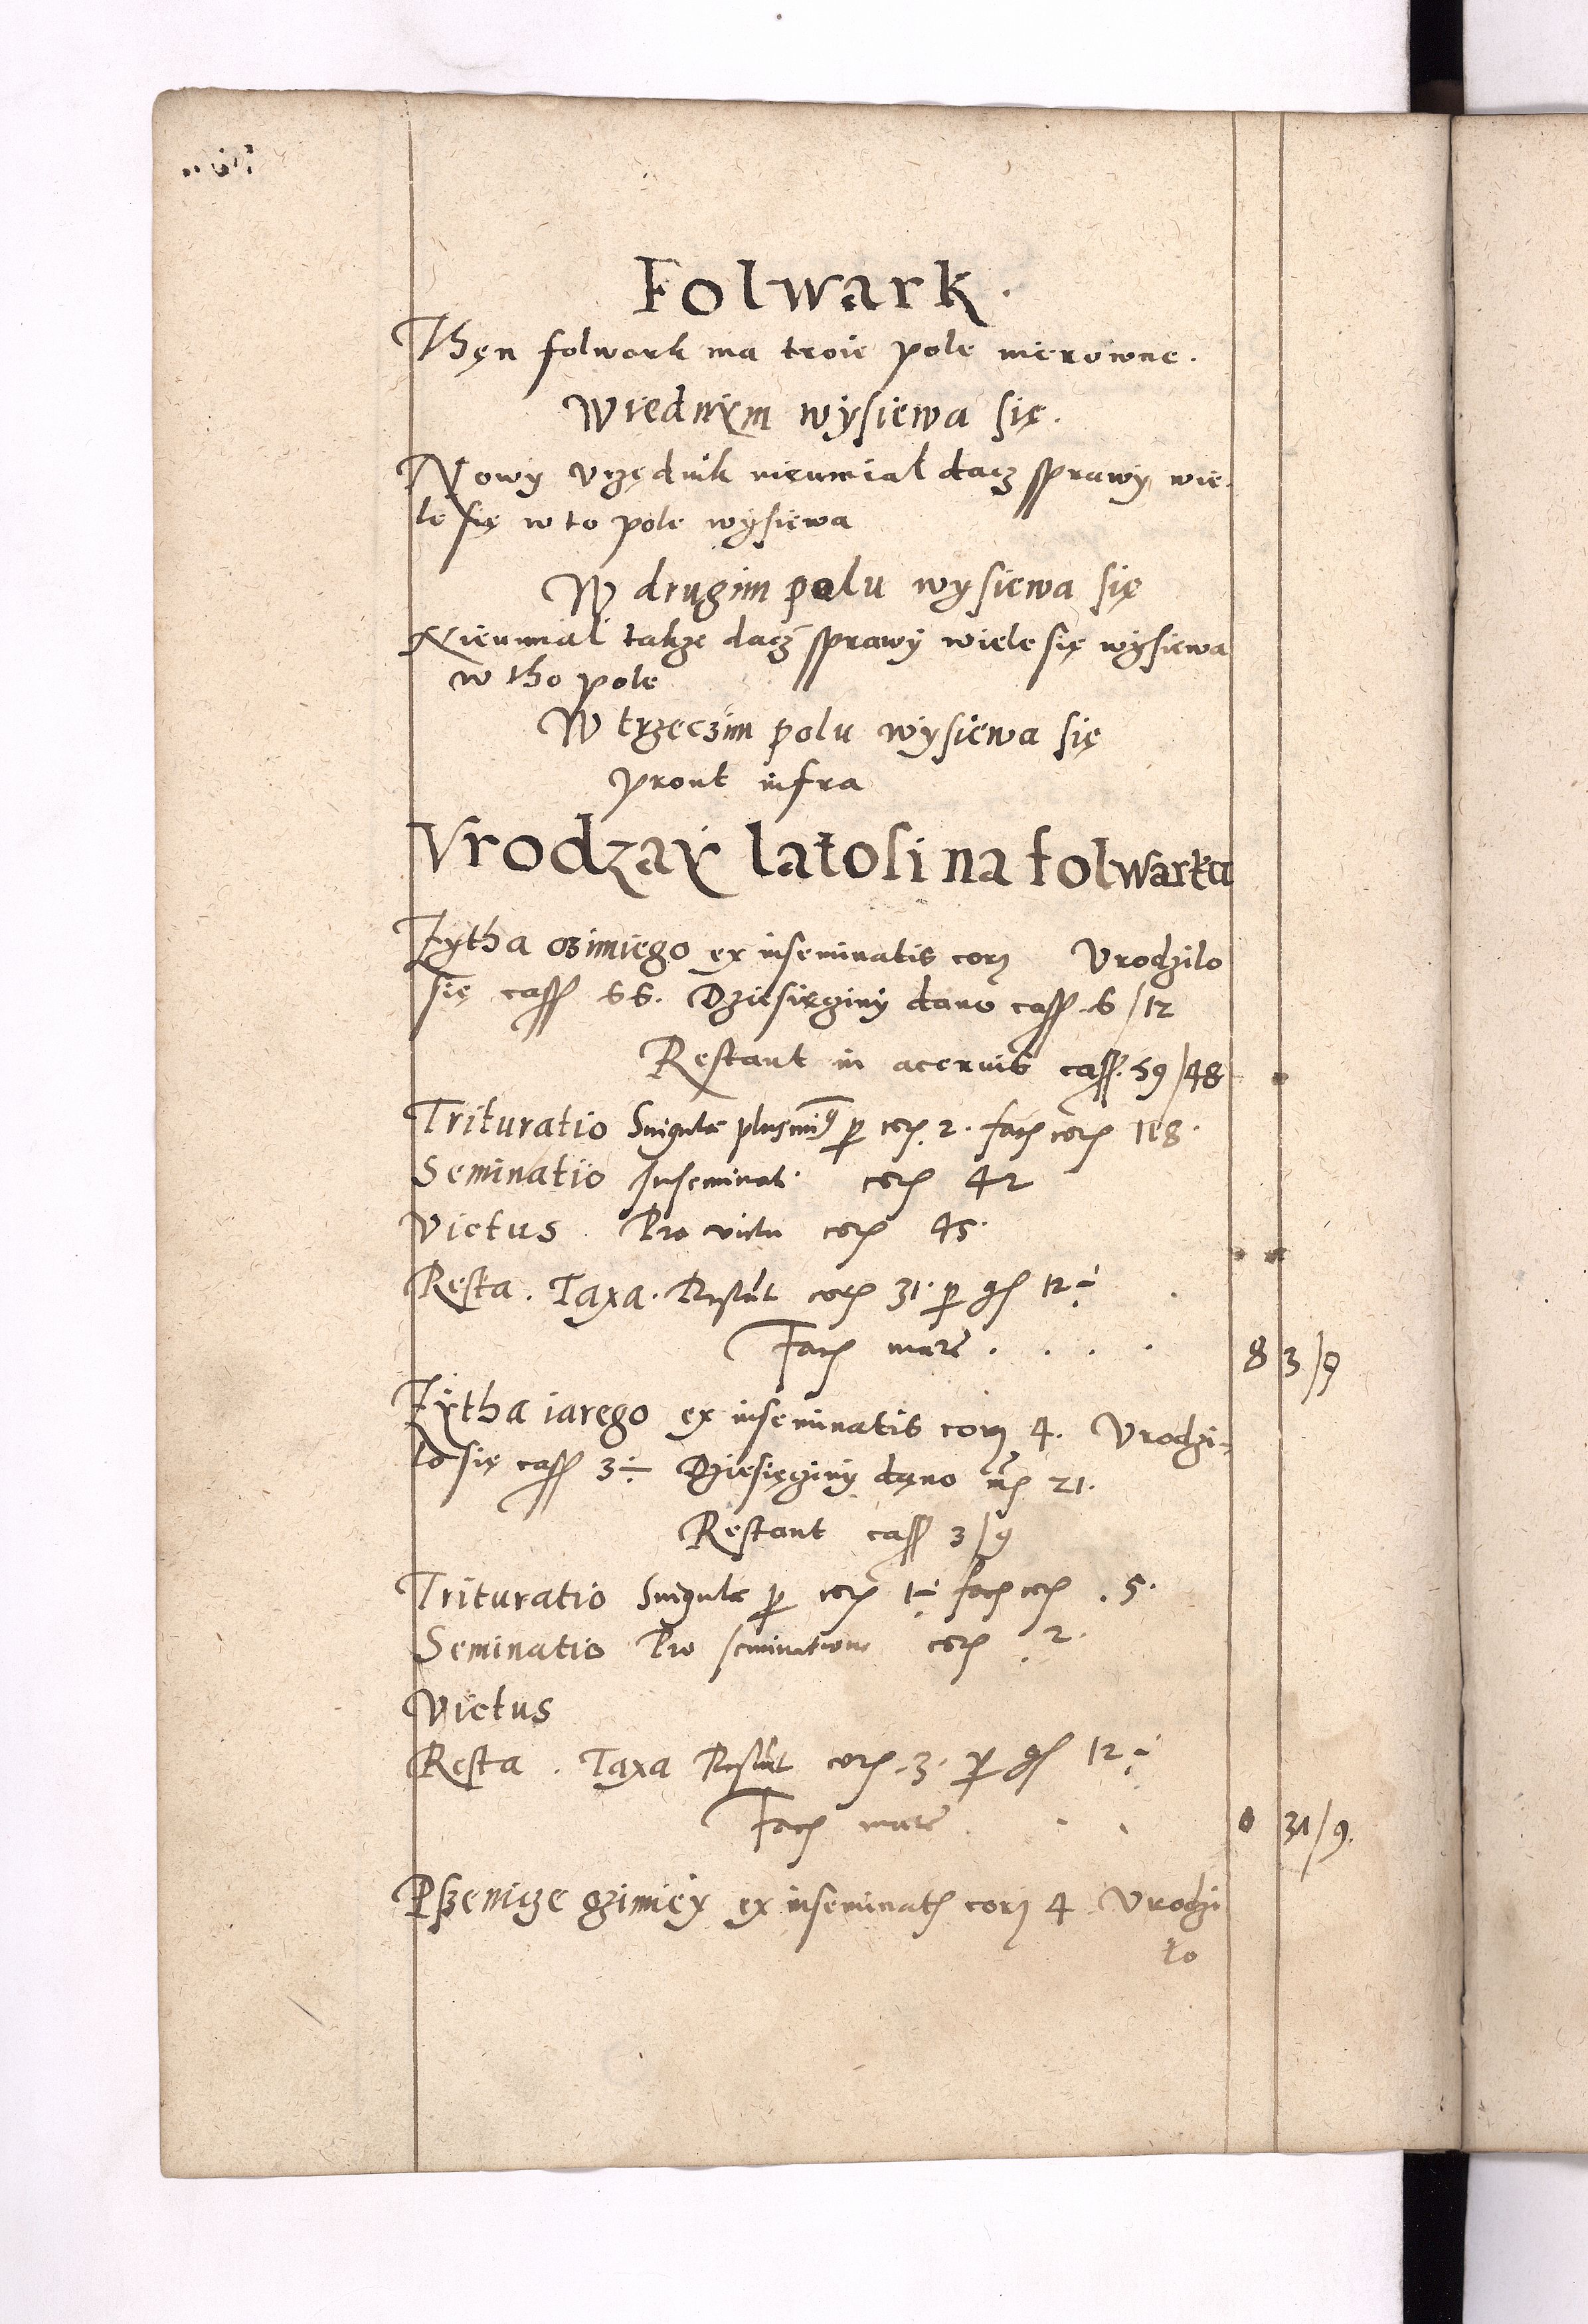 Folwark.
Thęn folwark ma troie pole nierowne.
W iednÿm wysiewa się.
Nowy vrzędnik nieumiał dacz sprawy wie-
le się w to pole wysiewa
W drugim polu wysiewa się
Nieumiał takze dacz sprawy wiele się wysiewa
w tho pole
W trzeczim polu wysiewa się
prout infra
Vrodzaÿ latosi na folwarku
Zytha ozimiego ex inseminatis corz Vrodzilo
się cass 66. Dziesięciny dano cass 6/12
Restant in acervis cass. 59/48
Trituratio Singula plusmin9 p cor 2. fac cor 118.
Seminatio Inseminat. cor 42
Victus. Pro victu cor 45.
Resta. Taxa. Restant cor 31. p gs 12÷
Fac marc . . . . 8 3/9
Zÿtha iarego ex inseminatis corz 4. Vrodzi-
lo się cass 3÷ Dziesięciny dano 21.
Restant cass 3/9
Trituratio Singula p cor 1÷ fac cor . 5.
Seminatio Pro seminatione cor . 2.
Victus
Resta . Taxa Restant cor . 3. p gs 12÷
Fac marc . . . 0 31/9.
Psenicze ozimeÿ ex inseminat corz 4 Vrodzi
ło